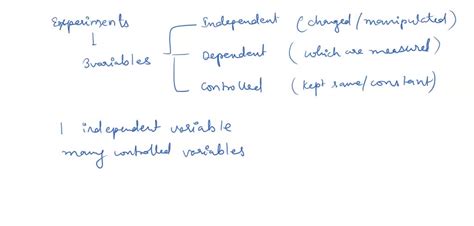 Experiments
3 variables
Independent (changed/manipulated)
Dependent (which are measured)
Controlled (kept same/constant)
1 independent variable
many controlled variables